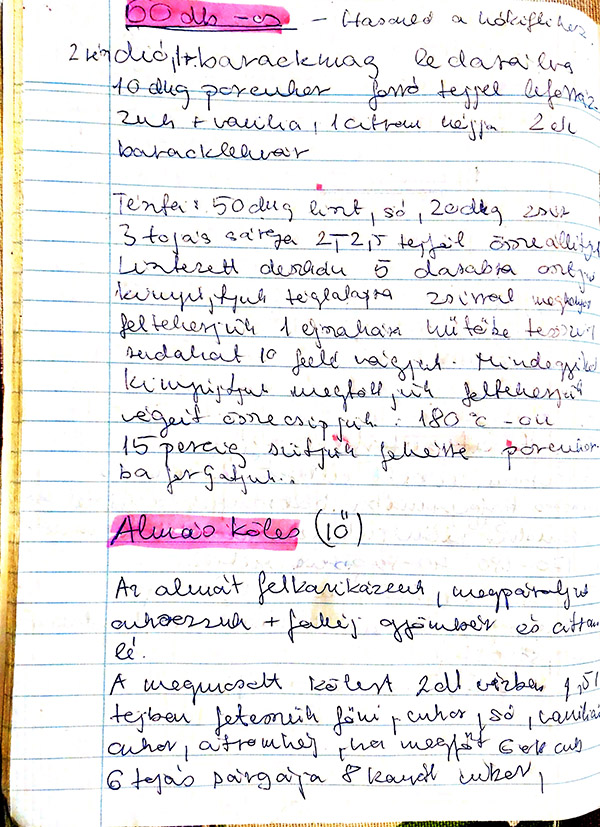 60 db -os - Hasonló a hókiflihez
2 rész dió, 1 r barackmag ledarálva
10 dkg porcukor forró tejjel leforráz-
zuk + vanília, 1 citrom héjja 2 ek
baracklekvár
Tészta: 50 dkg liszt, só, 20 dkg zsír
3 tojás sárgája 2-2,5 tejföl összeállítjuk
Lisztezett deszkán 5 darabra osztjuk
kinyújtjuk téglalapra zsírral megkenjük
feltekerjük 1 éjszakára hűtőbe tesszük
rudakat 10 felé vágjuk. Mindegyiket
kinyújtjuk megtöltjük feltekerjük
végeit összecsípjük. 180 °C -on
15 percig sütjük fehérre porcukor-
ba forgatjuk..
Almás köles (10)
Az almát felkarikázzuk, megpároljuk
cukorral + fahéj gyömbér és citrom
lé.
A megmosott kölest 2 dl vízben 1,5 l
tejben feltesszük főni, cukor, só, vaníliás
cukor, citromhéj, ha megfőtt 6 ek cuk
6 tojás sárgája 8 kanál cukor,